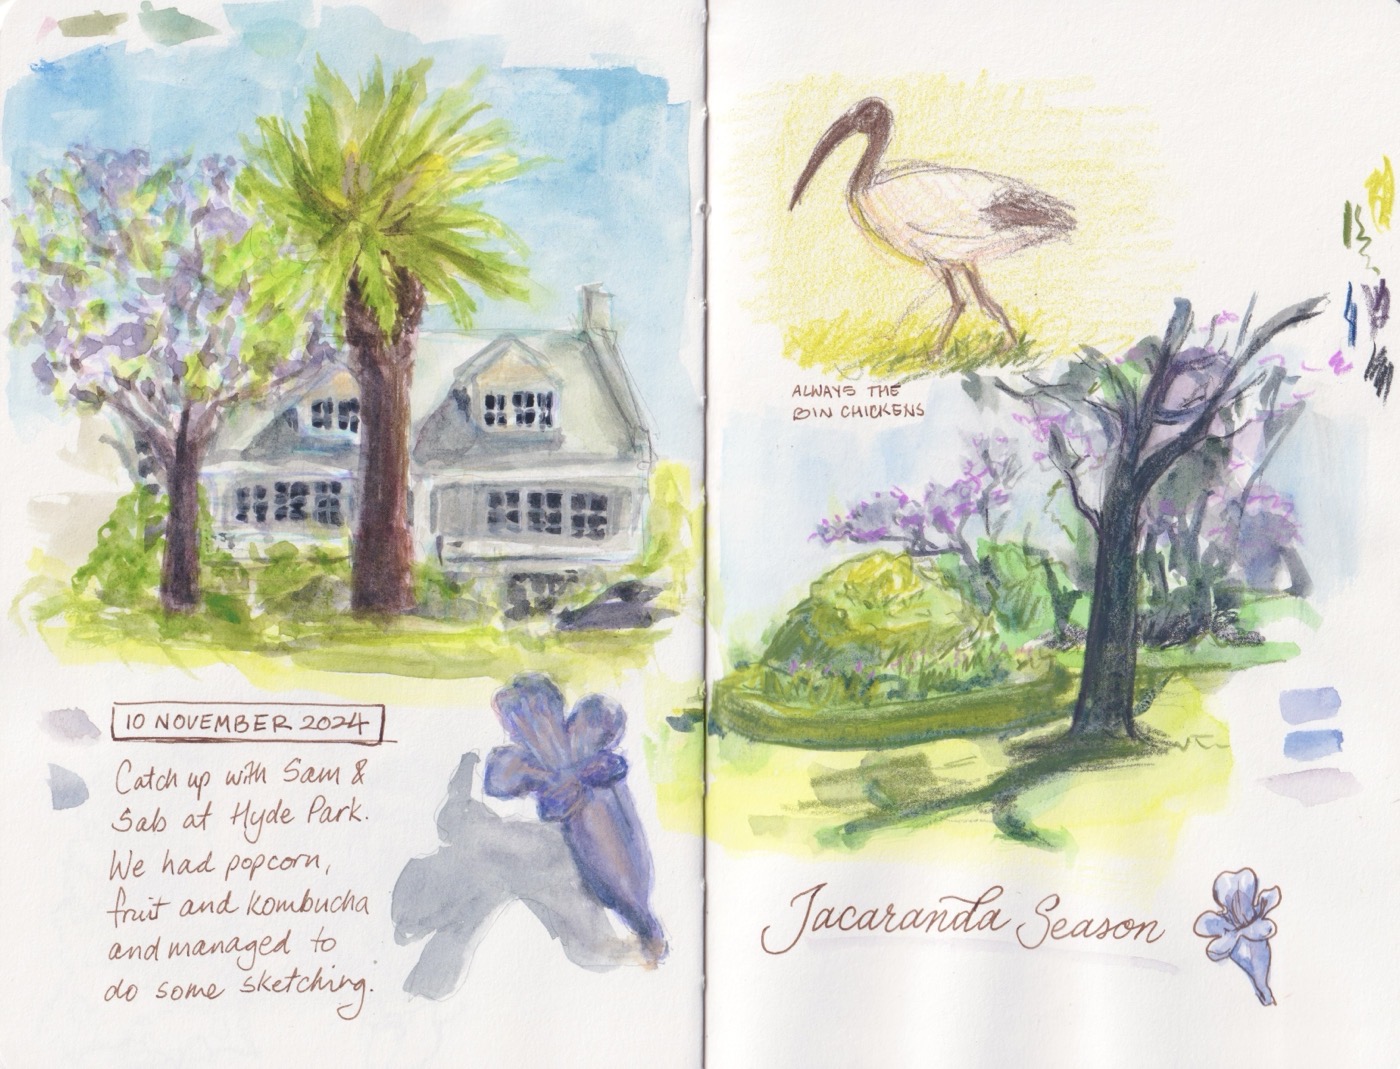 10 NOVEMBER 2024
Catch up with Sam &
Sab at Hyde Park.
We had popcorn,
fruit and kombucha
and managed to
do some sketching.
ALWAYS THE
BIN CHICKENS
Jacaranda Season